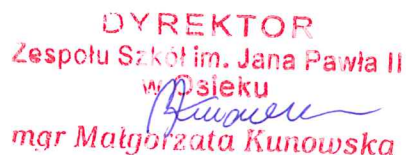 DYREKTOR
Zespołu Szkół im. Jana Pawła II
w Osieku
mgr Małgorzata Kunowska